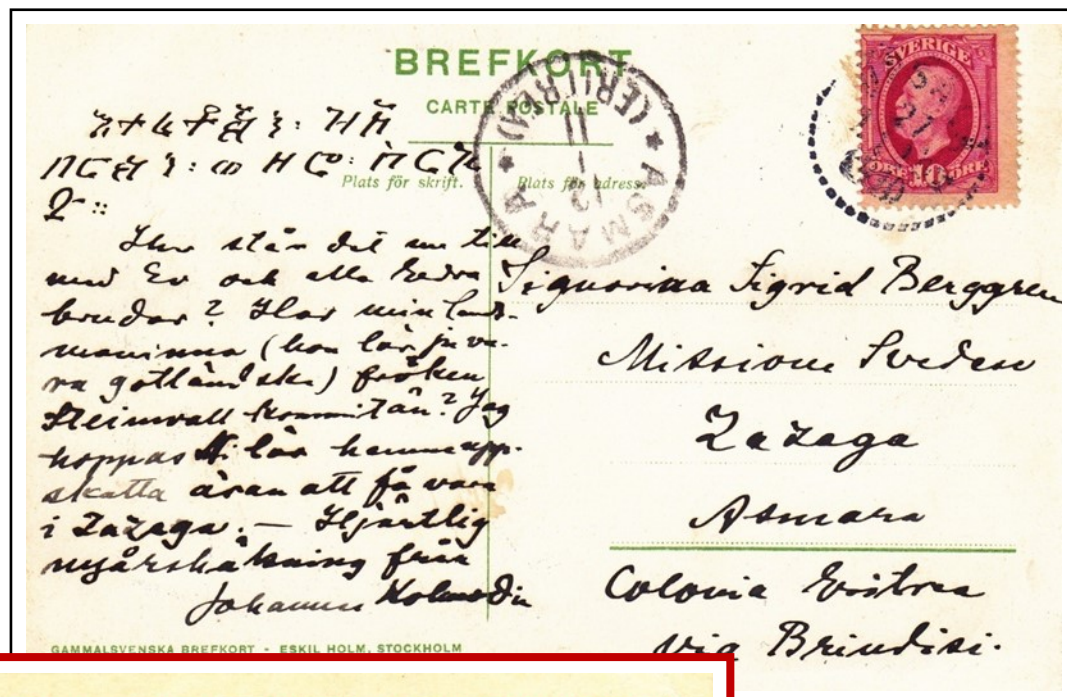 BREFKORT
CARTE POSTALE
Plats för skrift.
Plats för adress.
SVERIGE
10 ÖRE
ASMARA
(ERITREA)
11
1
12
Hur står det nu till
med Er och alla Edra
brudar? Har min lands-
maninna (hon lär ju va-
ra gotländska) fröken
Steinwall kommit än? Jag
hoppas Ni lär henne upp-
skatta äran att få vara
i Zazaga. — Hjärtlig
nyårshälsning från
Johannes Kolmodin
Signorina Sigrid Berggren
Missione Svedese
Zazaga
Asmara
Colonia Eritrea
via Brindisi.
GAMMALSVENSKA BREFKORT - ESKIL HOLM, STOCKHOLM